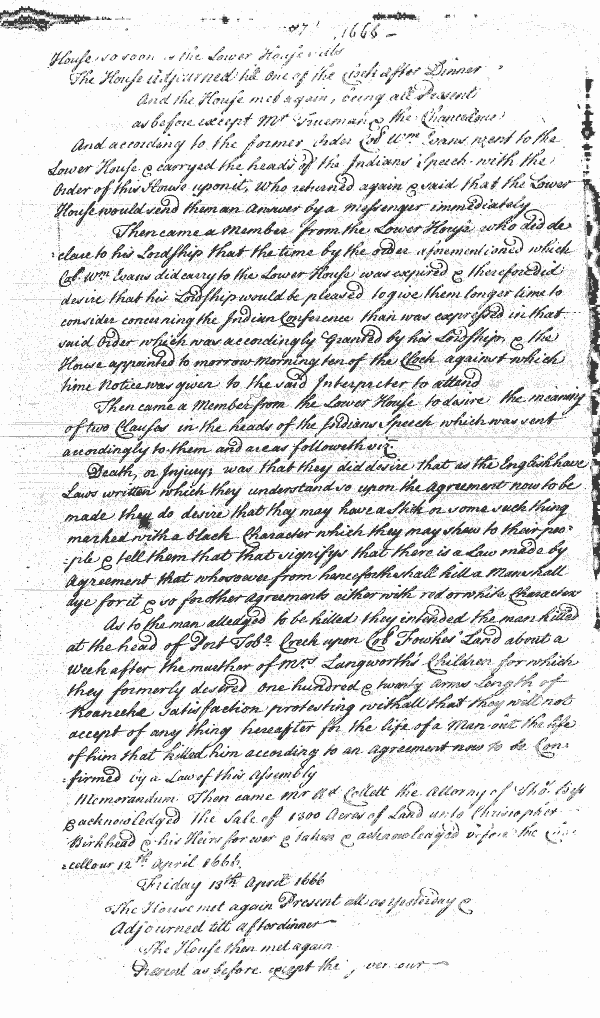 1666 –
House so soon as the Lower House
The House adjourned till one of the Clock after Dinner
And the House met again, being all Present
as before except Mr. Trueman & the Chancellour
And according to the former Order Col. Wm. Evans went to the
Lower House & carryed the heads of the Indians Speech with the
Order of this House upon it, Who returned again & said that the Lower
House would send them an Answer by a Messenger immediately
Then came a Member from the Lower House who did de
:clare to his Lordship that the time by the order aforementioned which
Col. Wm. Evans did carry to the Lower House was expired & therefore did
desire that his Lordship would be pleased to give them longer time to
consider concerning the Indian Conference than was expressed in that
said Order which was accordingly Granted by his Lordship, & the
House appointed to morrow Morning ten of the Clock against which
time Notice was given to the said Interpreter to attend
Then came a Member from the Lower House to desire the meaning
of two Clauses in the heads of the Indians Speech which was sent
accordingly to them and are as followeth viz:
Death, or Injury; was that they did desire that as the English have
Laws written which they understand so upon the Agreement now to be
made they do desire that they may have a Skin or some such thing
marked with a black Character which they may shew to their peo=
:ple & tell them that that signifys that there is a Law made by
Agreement that whosoever from henceforth shall kill a Man shall
dye for it & so for other Agreements either with red or white Character
As to the man alledged to be killed they intended the man killed
at the head of Port Tob.o Creek upon Col. Fowkes' Land about a
Week after the murther of Mrs. Langworth's Children for which
they formerly desired one hundred & twenty Arms Length of
Roanecke Satisfaction protesting withall that they will not
accept of any thing hereafter for the life of a Man but the life
of him that killed him according to an Agreement now to be Con=
:firmed by a Law of this Assembly
Memorandum Then came Mr. Collett the Attorny of Tho.
& acknowledged the Sale of 1300 Acres of Land unto Christopher
Birkhead & his Heirs for ever & taken & acknowledged before the
:cellour 12th. April 1666.
Friday 13th. April 1666
The House met again Present all as Yesterday &
Adjourned till after dinner
The House then met again
Present as before except the